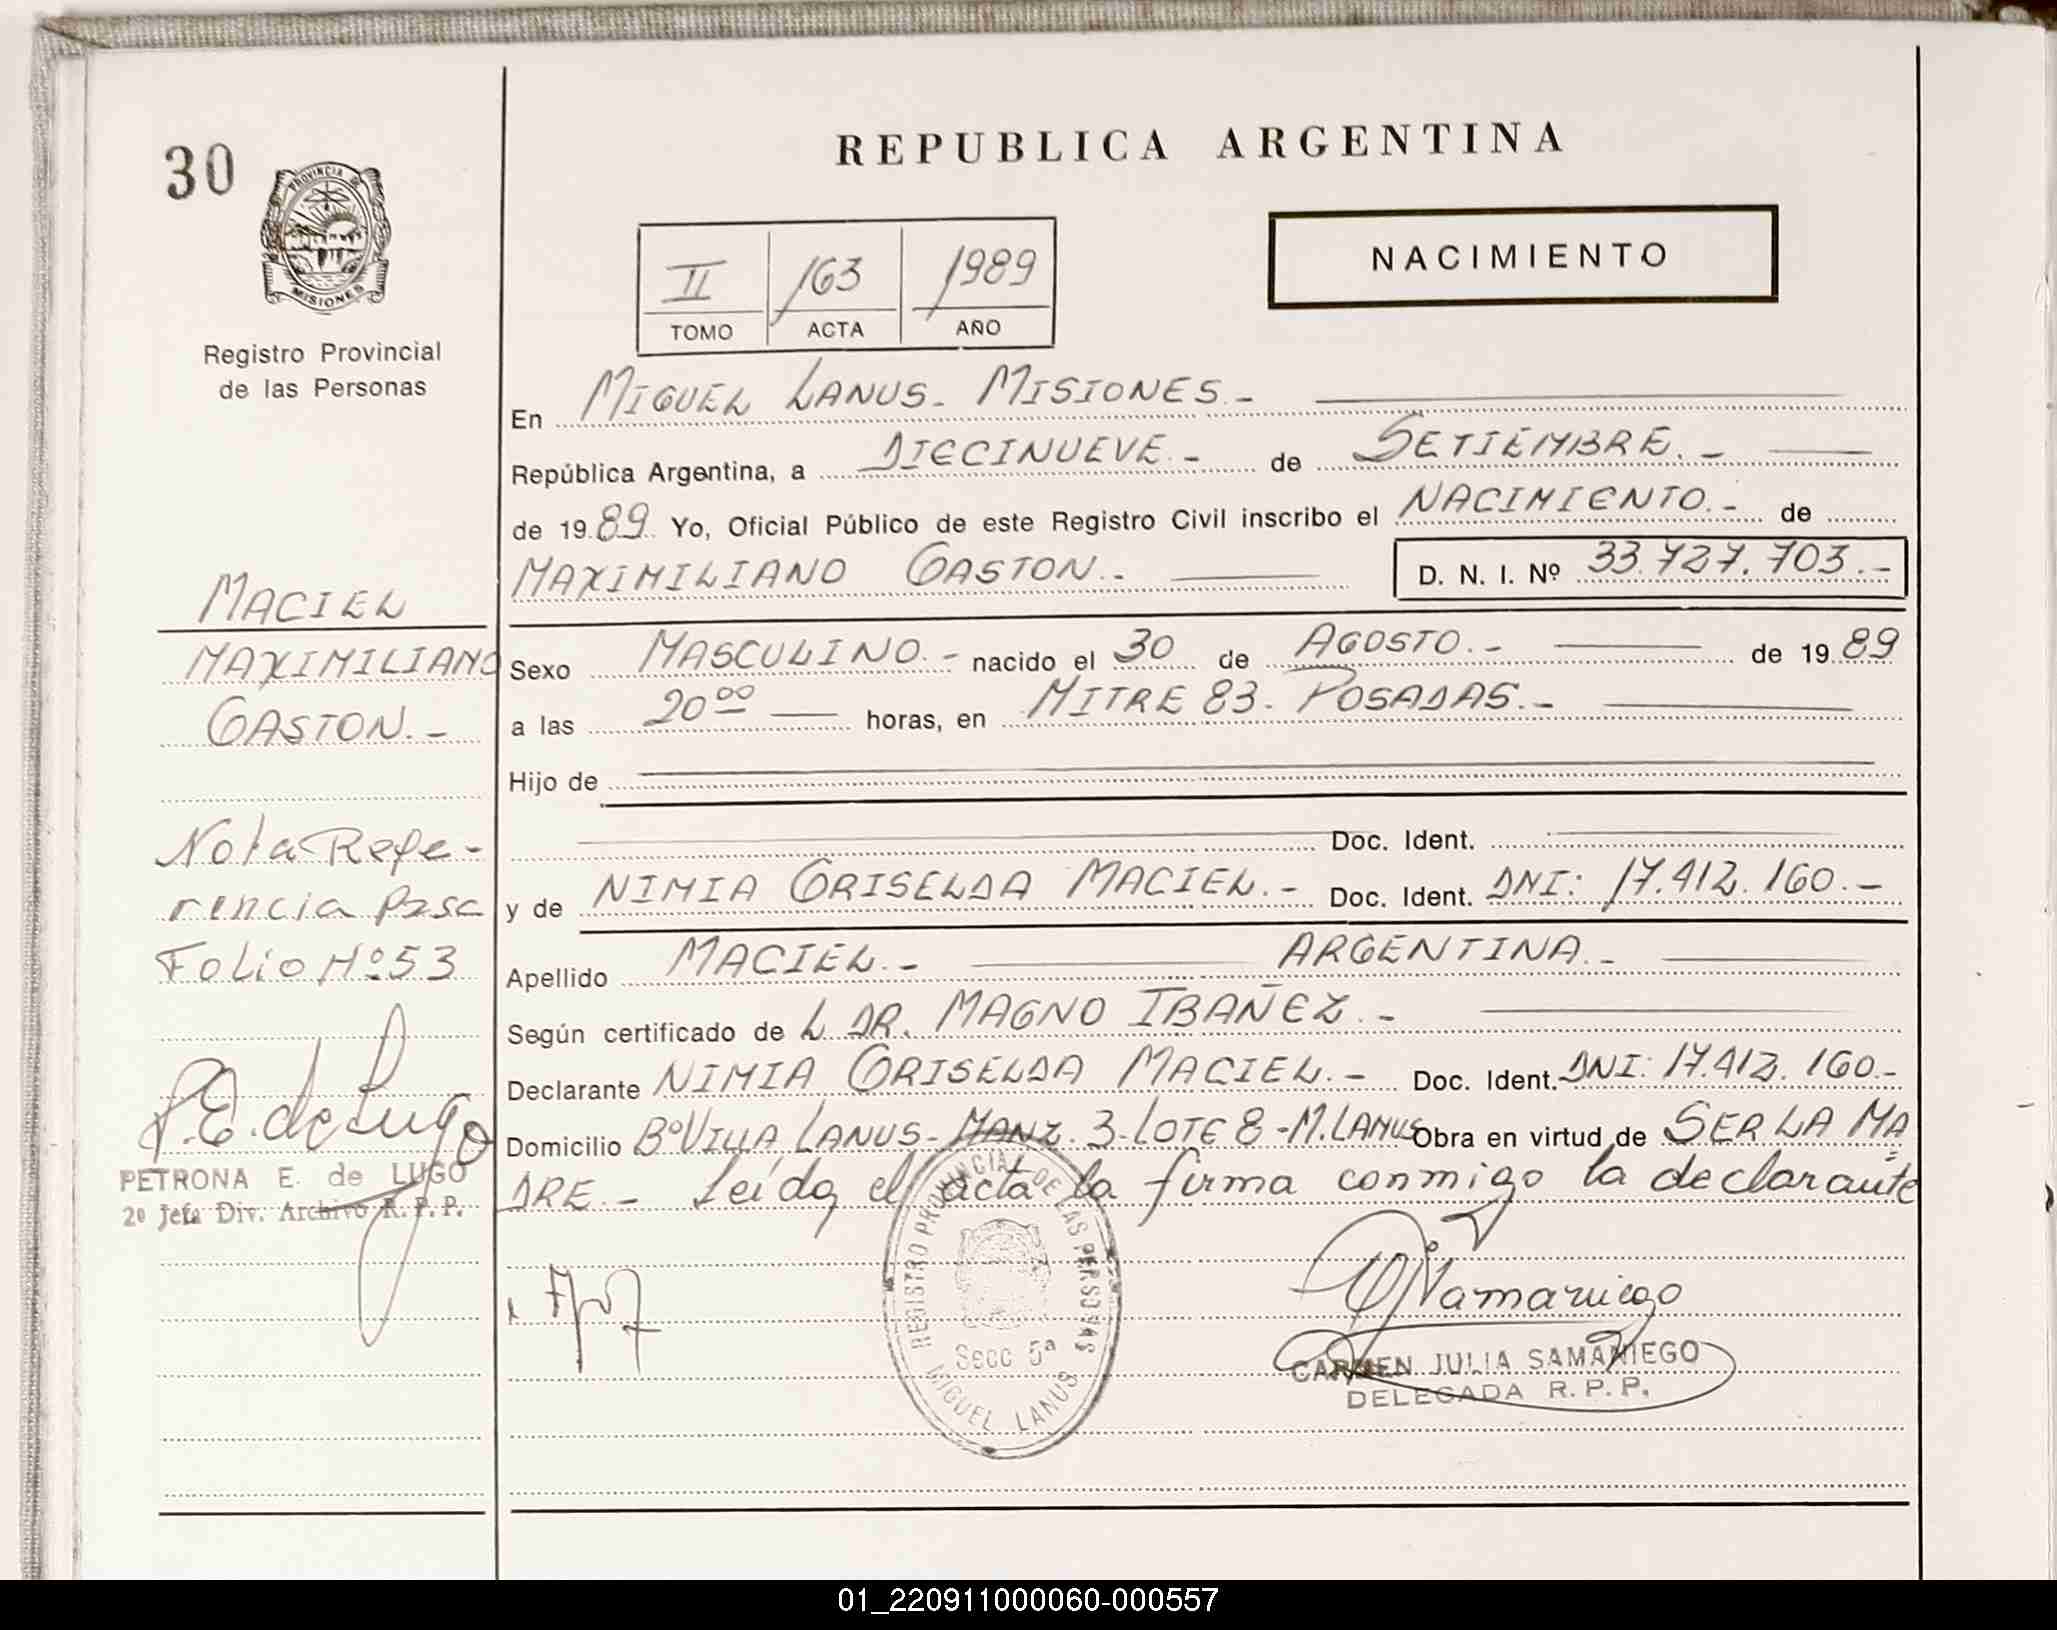 30
PROVINCIA DE
MISIONES
Registro Provincial
de las Personas
REPUBLICA ARGENTINA
NACIMIENTO
II 163 1989
TOMO ACTA AÑO
En MIGUEL LANUS - MISIONES.-
República Argentina, a DIECINUEVE.- de SETIEMBRE.-
de 1989 Yo, Oficial Público de este Registro Civil inscribo el NACIMIENTO.- de
MAXIMILIANO GASTON.- D. N. I. Nº 33.727.703.-
Sexo MASCULINO.- nacido el 30 de AGOSTO.- de 1989
a las 20⁰⁰ horas, en MITRE 83 - POSADAS.-
Hijo de
Doc. Ident.
y de NIMIA GRISELDA MACIEL.- Doc. Ident. DNI: 17.412.160.-
Apellido MACIEL.- ARGENTINA.-
Según certificado de L DR. MAGNO IBAÑEZ.-
Declarante NIMIA GRISELDA MACIEL.- Doc. Ident. DNI: 17.412.160.-
Domicilio Bº VILLA LANUS - MANZ. 3 - LOTE 8 - M. LANUS Obra en virtud de SER LA MA
DRE.- Leída el acta la firma conmigo la declarante
MACIEL
MAXIMILIANO
GASTON.-
Nota Refe-
rencia pasa
Folio Nº 53
P.E. de Lugo
PETRONA E. de LUGO
2º Jefa Div. Archivo R. P. P.
REGISTRO PROVINCIAL DE LAS PERSONAS
Secc 5ª
MIGUEL LANUS
CARMEN JULIA SAMANIEGO
DELEGADA R. P. P.
01_220911000060-000557